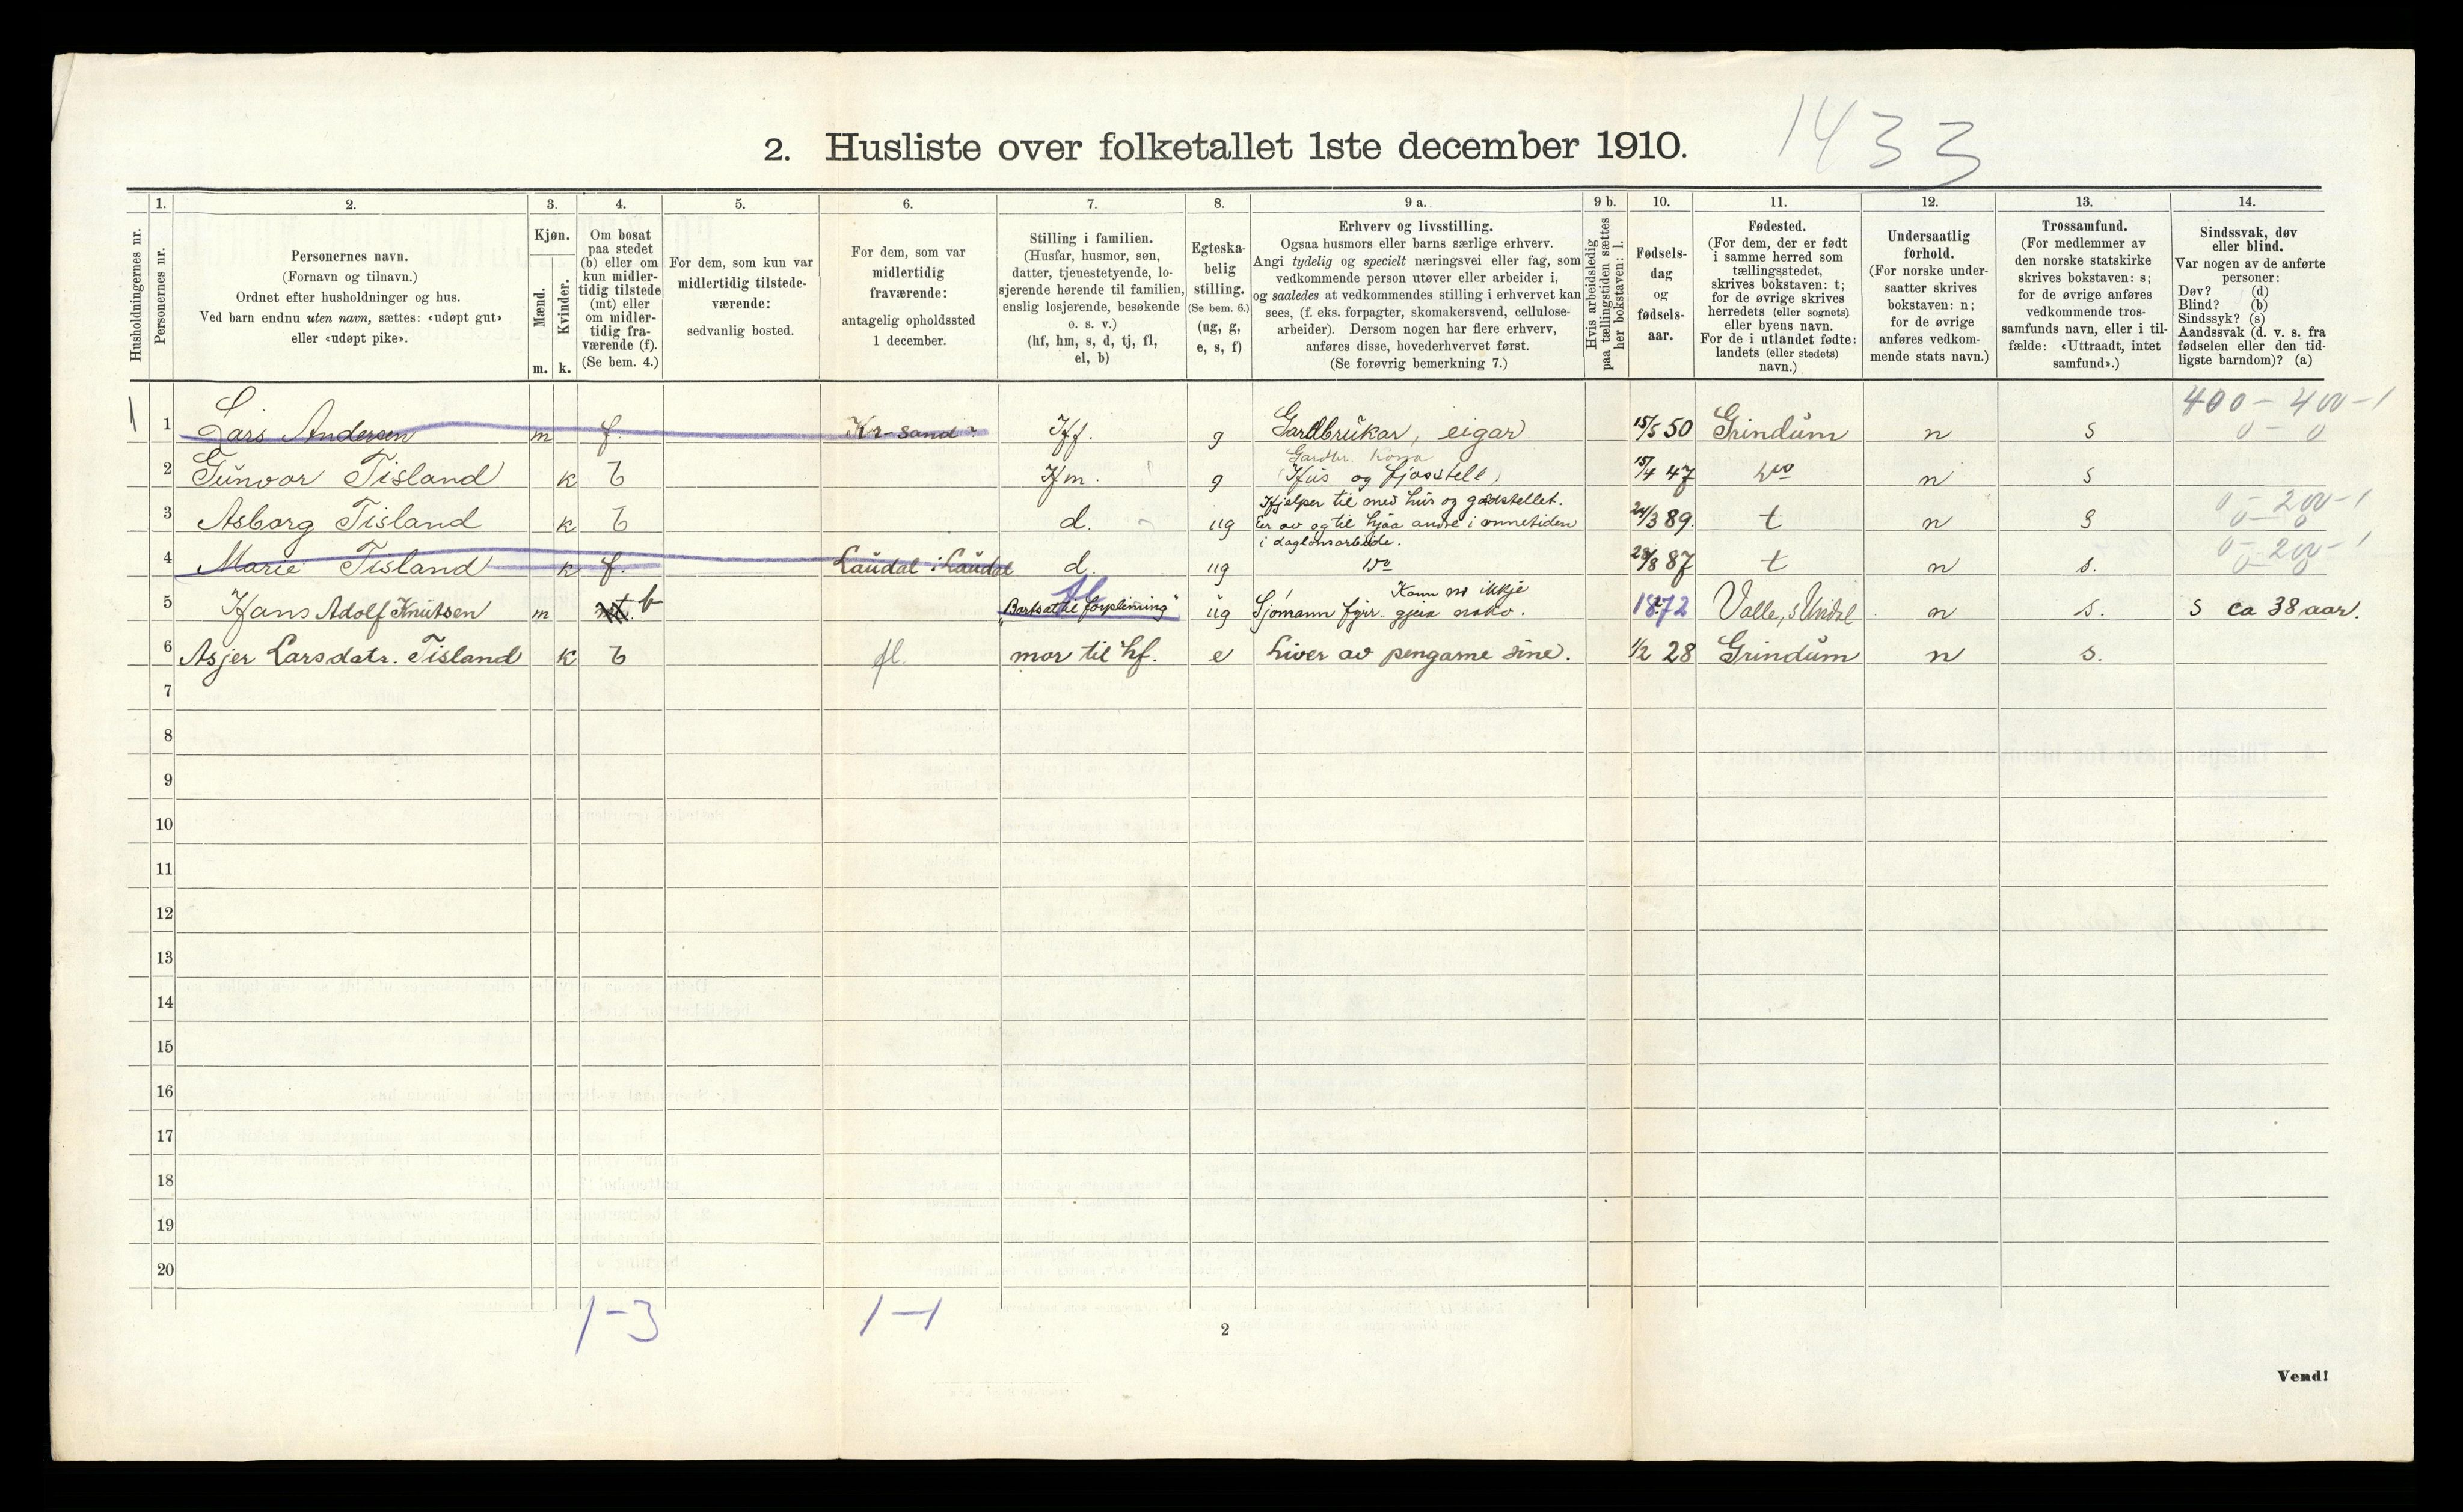 1433
2. Husliste over folketallet 1ste december 1910.
Husholdningernes nr.
1.
Personernes nr.
2.
Personernes navn.
(Fornavn og tilnavn.)
Ordnet efter husholdninger og hus.
Ved barn endnu uten navn, sættes: «udøpt gut»
eller «udøpt pike».
3.
Kjøn.
Mænd.
Kvinder.
m. k.
4.
Om bosat
paa stedet
(b) eller om
kun midler-
tidig tilstede
(mt) eller
om midler-
tidig fra-
værende (f).
(Se bem. 4.)
5.
For dem, som kun var
midlertidig tilstede-
værende:
sedvanlig bosted.
6.
For dem, som var
midlertidig
fraværende:
antagelig opholdssted
1 december.
7.
Stilling i familien.
(Husfar, husmor, søn,
datter, tjenestetyende, lo-
sjerende hørende til familien,
enslig losjerende, besøkende
o. s. v.)
(hf, hm, s, d, tj, fl,
el, b)
8.
Egteska-
belig
stilling.
(Se bem. 6.)
(ug, g,
e, s, f)
9 a.
Erhverv og livsstilling.
Ogsaa husmors eller barns særlige erhverv.
Angi tydelig og specielt næringsvei eller fag, som
vedkommende person utøver eller arbeider i,
og saaledes at vedkommendes stilling i erhvervet kan
sees, (f. eks. forpagter, skomakersvend, cellulose-
arbeider). Dersom nogen har flere erhverv,
anføres disse, hovederhvervet først.
(Se forøvrig bemerkning 7.)
9 b.
Hvis arbeidsledig
paa tællingstiden sættes
her bokstaven: l.
10.
Fødsels-
dag
og
fødsels-
aar.
11.
Fødested.
(For dem, der er født
i samme herred som
tællingsstedet,
skrives bokstaven: t;
for de øvrige skrives
herredets (eller sognets)
eller byens navn.
For de i utlandet fødte:
landets (eller stedets)
navn.)
12.
Undersaatlig
forhold.
(For norske under-
saatter skrives
bokstaven: n;
for de øvrige
anføres vedkom-
mende stats navn.)
13.
Trossamfund.
(For medlemmer av
den norske statskirke
skrives bokstaven: s;
for de øvrige anføres
vedkommende tros-
samfunds navn, eller i til-
fælde: «Uttraadt, intet
samfund».)
14.
Sindssvak, døv
eller blind.
Var nogen av de anførte
personer:
Døv? (d)
Blind? (b)
Sindssyk? (s)
Aandssvak (d. v. s. fra
fødselen eller den tid-
ligste barndom)? (a)
400 - 400 - 1
1 1 Lars Andersen m f. Kr-sand? Hf. g Gardbrukar, eigar 15/5 50 Grindum n s 0 - 0
Gardbr. kona
2 Gunvor Tisland k b Hm. g (Hus og fjosstell) 15/4 47 do n s
Hjelper til med hus og gardstellet. 0 - 200 - 1
3 Asborg Tisland k b d. ug Eer av og til hjaa andre i onnetiden 24/3 89. t n s 0 - 0
i daglonsarbeide. 0 - 200 - 1
4 Marie Tisland k f. Laudal i Laudal d. ug do 28/8 87 t n s. 0 - 0
fl Kann no ikkje
5 Hans Adolf Knutsen m mt. b "Bortsat til forpleining" ug Sjømann fyrr. gjera noko. 1872 Valle, s Undal n s. s ca 38 aar.
6 Asjer Larsdatr. Tisland k b fl. mor til hf. e Liver av pengarne sine. 1/2 28 Grindum n s.
7
8
9
10
11
12
13
14
15
16
17
18
19
20
1-3 1-1
2
Vend!